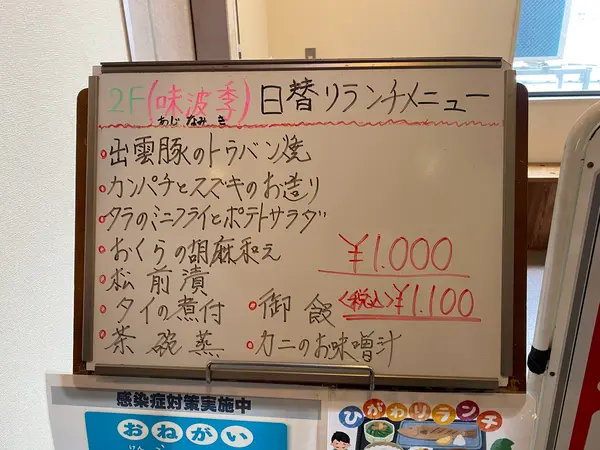 2F(味波季)日替リランチメニュー
あじ なみ き
出雲豚のトウバン焼
カンパチとスズキのお造り
タラのミニフライとポテトサラダ
おくらの胡麻和え
松前漬
タイの煮付
茶碗蒸
御飯
カニのお味噌汁
¥1.000
<税込>¥1.100
感染症対策実施中
おねがい
ひがわりランチ